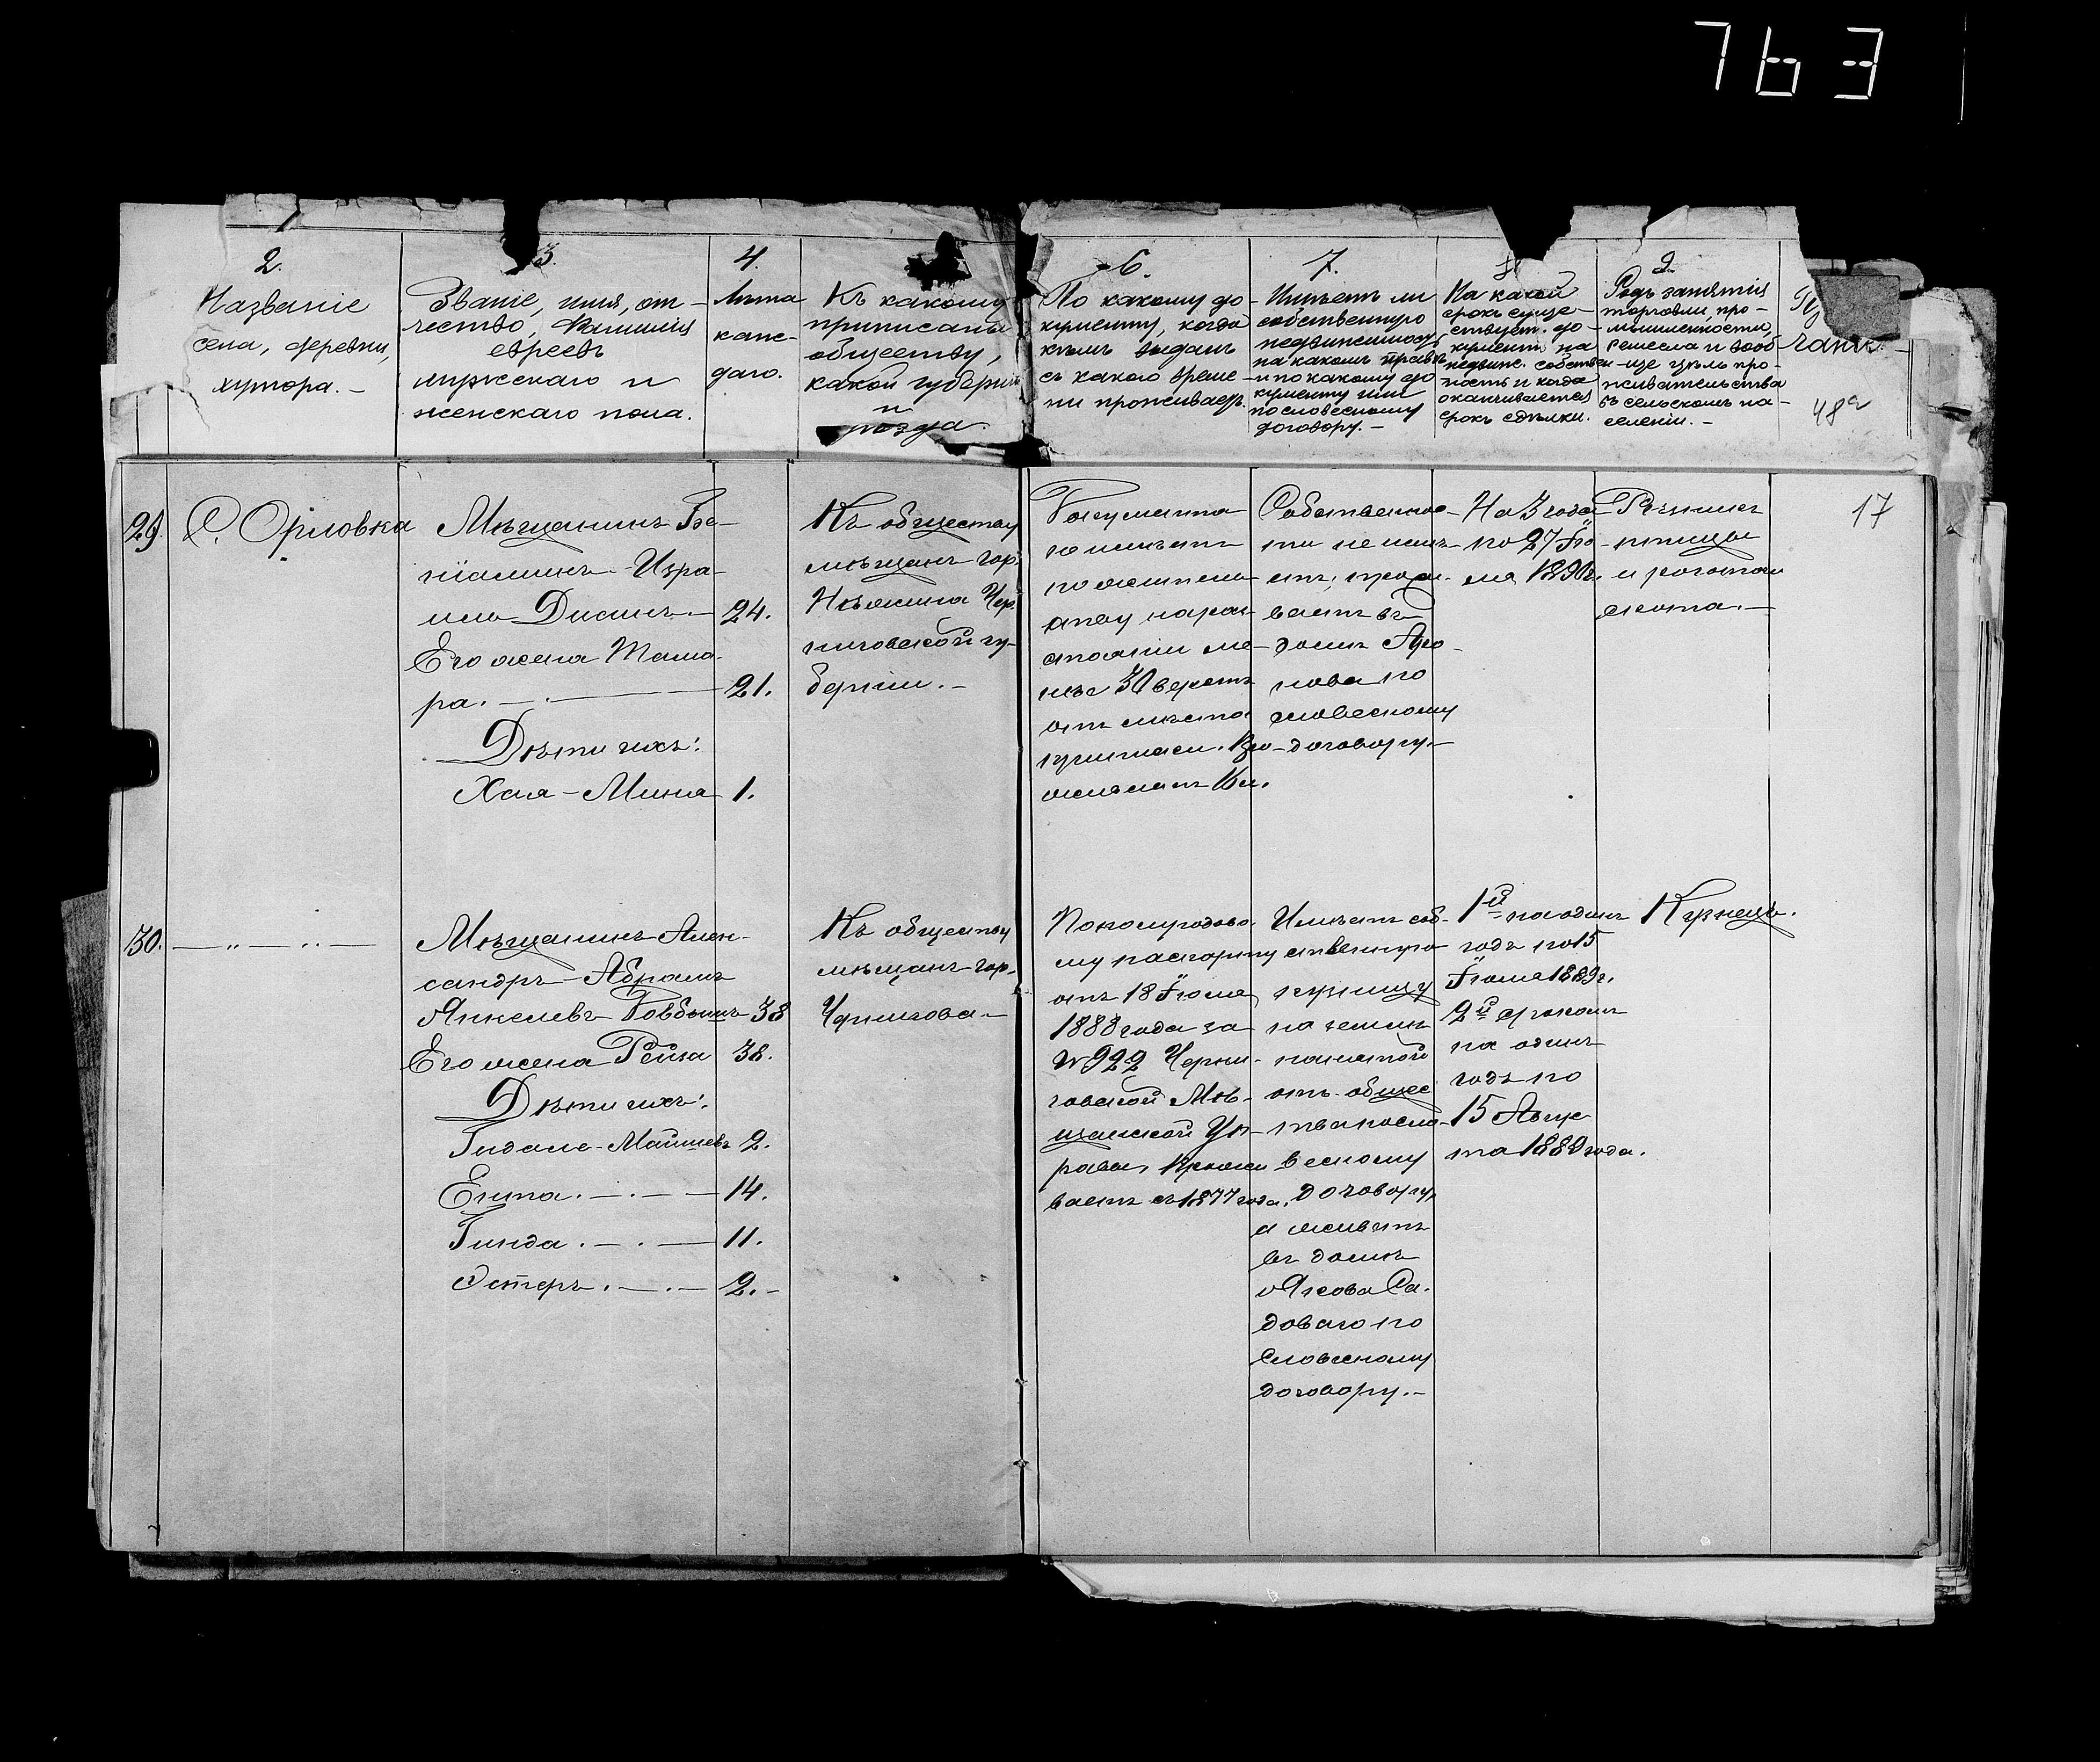 763
2.
Названіе
села, деревни,
хутора. –
3.
Званіе, имя, от-
чество, Фамилія
евреевъ
мужскаго и
женскаго пола.
4.
Лѣта
каж-
даго.
Къ какому
приписаны
обществу,
какой губерніи
и
уѣзда.
6.
По какому до-
кументу, когда
кѣмъ выданъ
съ какого време-
ни проживаетъ.
7.
Имѣетъ ли
собственную
недвижимость
на какомъ правѣ
и по какому до-
кументу или
по словесному
договору. –
На какой
срокъ суще-
ствуетъ до-
кументъ на
недвиж. собствен-
ность и когда
оканчивается
срокъ сдѣлки.
9.
Родъ занятія
торговли, про-
мышленности,
ремесла и вооб-
ще цѣль про-
живательства
въ сельскомъ на-
селеніи. –
чаніе.
48
17
29.
С. Орловка
Мѣщанинъ Бе-
ніаминъ Изра-
иль Дисинъ – 24.
Его жена Тама-
ра. – 21.
Дѣти ихъ:
Хая-Мина 1.
Къ обществу
мѣщанъ гор.
Нѣжина Чер-
ниговской гу-
берніи. –
Документа
не имѣетъ
по жительству
на разстояніи ме-
нѣе 30 верстъ
отъ мѣста
Собственнос-
ти не имѣ-
етъ, прожи-
ваетъ въ
домѣ
по
словесному
договору. –
На 3 года
по 27 Ію-
ля 1890г.
Рѣзникъ
птицы
и рогатаго
скота. –
30.
– " – " –
Мѣщанинъ Алек-
сандръ-Абрамъ
Янкелевъ Товбинъ 38
Его жена Рейза 38.
Дѣти ихъ:
Гидале-Майшевъ 2.
Егита. – . – 14.
Гинда. – . – 11.
Эстеръ. – . – 2. –
Къ обществу
мѣщанъ гор.
Чернигова –
По полугодово-
му паспорту
отъ 18 Іюля
1888 года за
№ 922 Черни-
говской Мѣ-
щанской Уп-
равы, прожи-
ваетъ съ 1877 года.
Имѣетъ соб-
ственную
кузницу
на землѣ
нанятой
отъ общес-
тва по сло-
весному
договору
а живетъ
въ домѣ
Якова Са-
доваго по
словесному
договору. –
1й на одинъ
годъ по 15
Іюля 1889г.
2й срокомъ
на одинъ
годъ по
15 Авгус-
та 1889 года.
Кузнецъ.